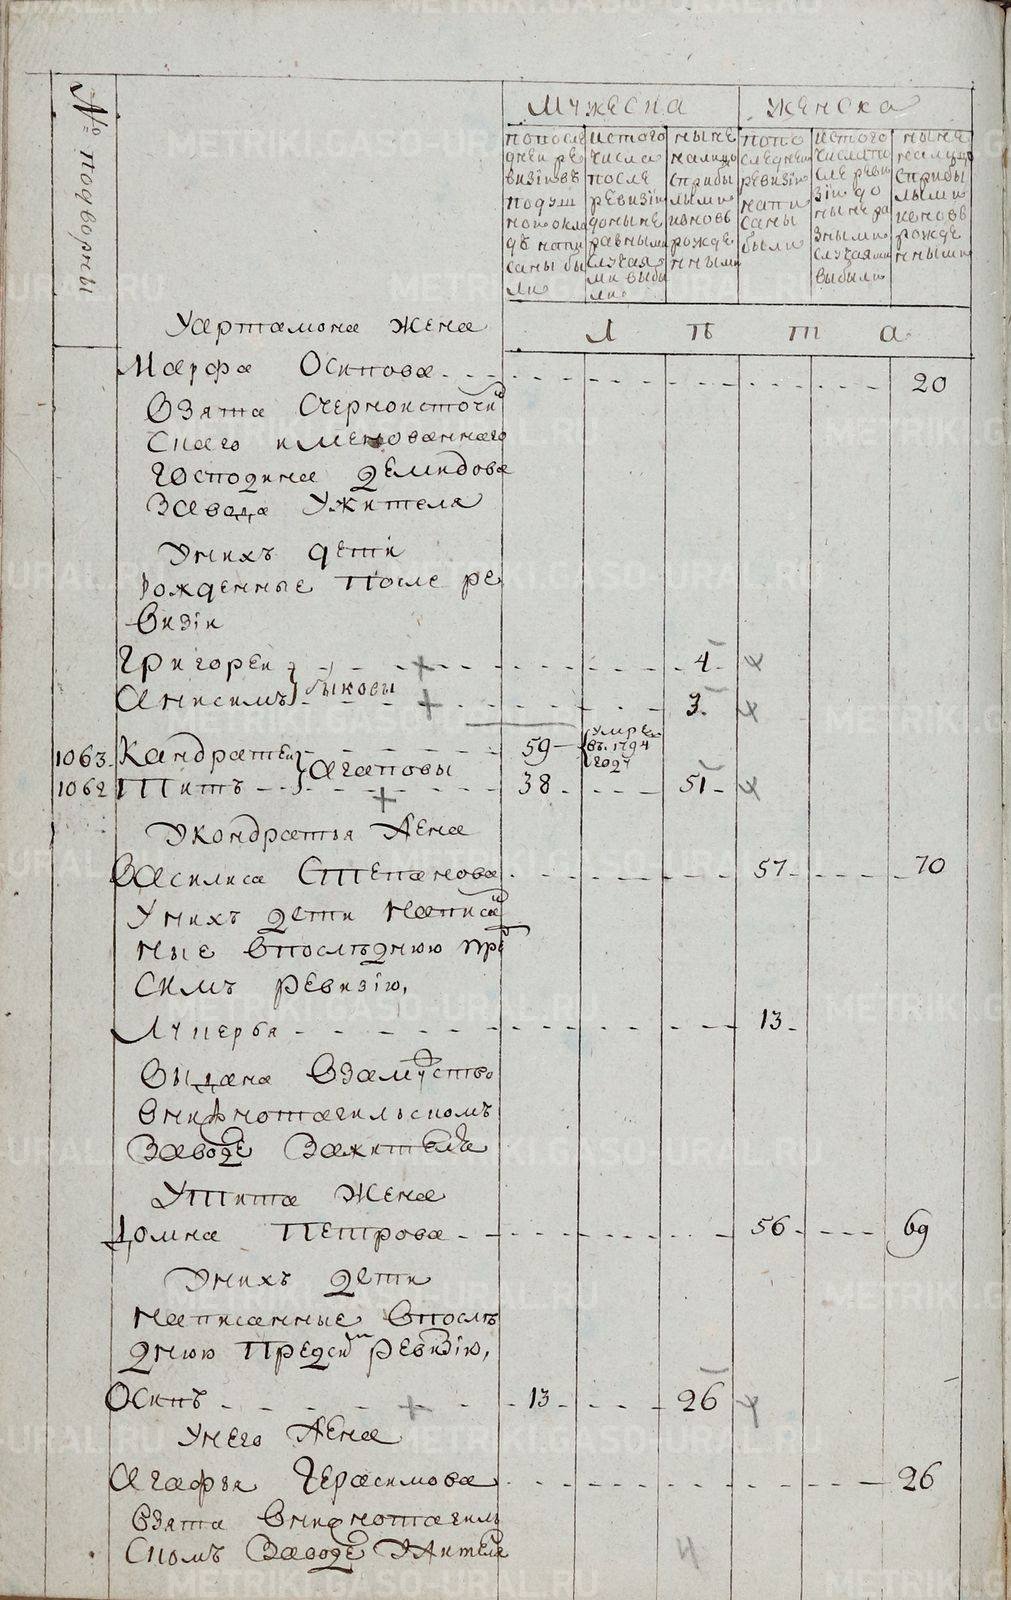 № подворны
мужеска
женска
попосле
дней ре
визiи въ
подуш
ной окла
дъ напи
саны бы
ли
истого
числа
после
ревизiи
доныне
разными
случая
ми выбы
ли
ныне
налицо
сприбы
лыми
ивновь
рожде
нными
попо
следней
ревизiи
напи
саны
были
истого
числа по
сле реви
зiи до
ныне ра
зными
случаями
выбыли
ныне
налицо
сприбы
лыми
ивновь
рожде
нными
Лѣта
Уартамона жена
Марфа Осипова 20
Взята Счерноисточи
скаго именованнаго
Господина Демидова
Завода Ужителя
Унихъ дети
Рожденные После ре
визiи
Григореи 4
Анисимъ } быковы 3
1063 Кандратеи 59 {умре въ 1794 годѣ
1062 Титъ } Агаповы 38 51
Укондратья Жена
Василиса Степанова 57 70
Унихъ дети написа
ные впослѣднюю пре
симъ ревизiю,
Лукерья 13
Выдана Взамуство
внижнотагильскомъ
Заводе Зажителя
УТита Жена
Домна Петрова 56 69
Унихъ дети
написанные впослѣ
днюю Предсимъ ревизiю,
Осипъ 13 26
Унего Жена
Агафья Герасимова 26
Взята внижнотагиль
скомъ Заводе Ужителя